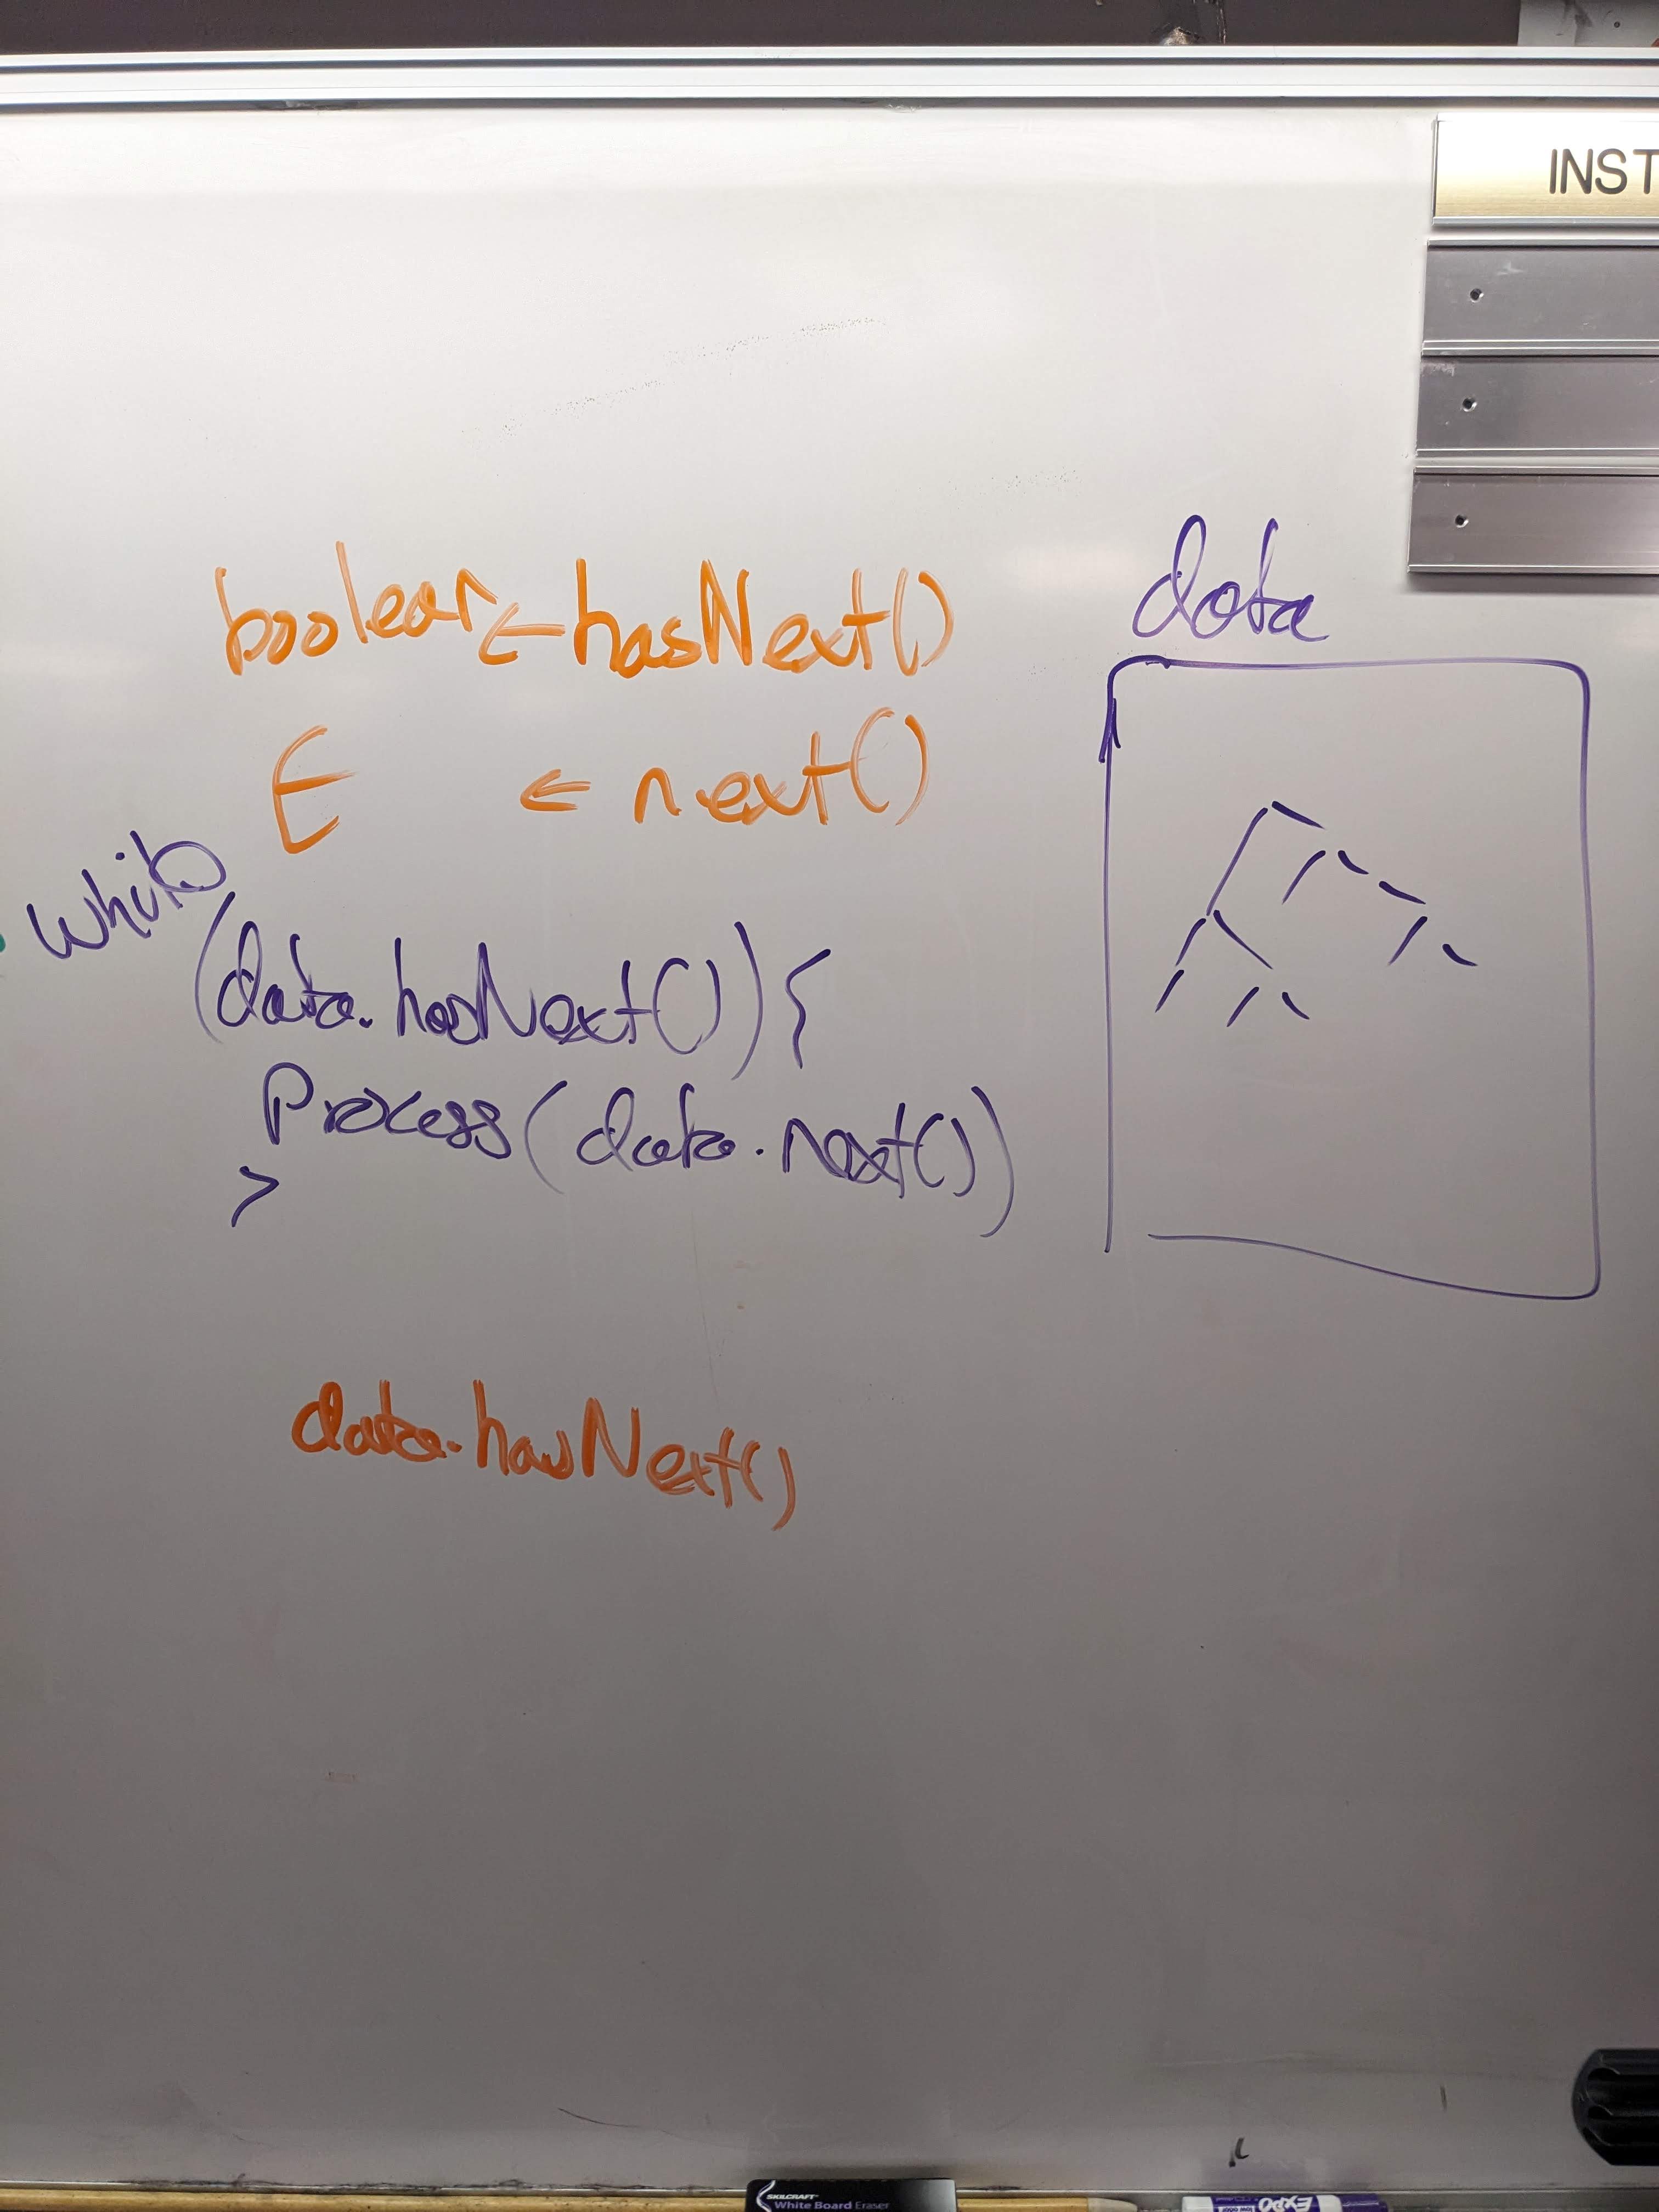 INST
boolean ← hasNext()
data
E ← next()
while
(data.hasNext()) {
Process(data.next())
}
data.hasNext()
SKILCRAFT
White Board Eraser
EXPO
low odor